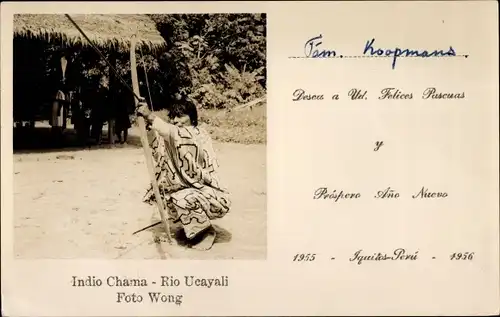 Fam. Koopmans
Desea a Ud. Felices Pascuas
y
Próspero Año Nuevo
1955 - Iquitos-Perú - 1956
Indio Chama - Rio Ucayali
Foto Wong